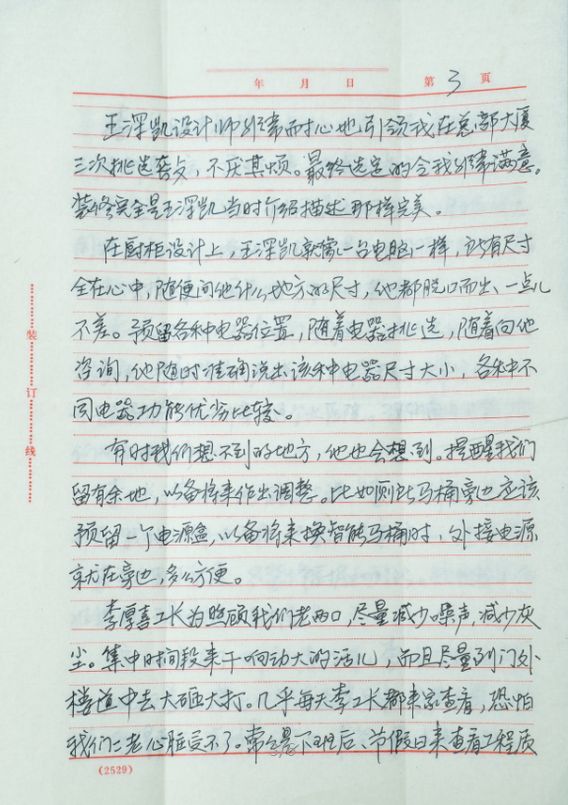 年 月 日 第 3 页
王深凯设计师很耐心地引领我在总部大厦
三次挑选套餐,不厌其烦。最终选定的令我很满意。
装修完全是王深凯当时介绍描述那样完美。
在厨柜设计上,王深凯就像一台电脑一样,所有尺寸
全在心中,随便问他什么地方的尺寸,他都脱口而出、一点儿
不差。预留各种电器位置,随着电器挑选,随着向他
咨询,他随时准确说出该种电器尺寸大小,各种不
同电器功能优劣比较。
有时我们想不到的地方,他也会想到。提醒我们
留有余地,以备将来作出调整。比如厕所马桶旁边应该
预留一个电源盒,以备将来换智能马桶时,外接电源
就在旁边,多么方便。
李厚喜工长为照顾我们老两口,尽量减少噪声,减少灰
尘。集中时间段来干响动大的活儿,而且尽量到门外
楼道中去大砸大打。几乎每天李工长都来家查看,恐怕
我们二老心脏受不了。常常是下班后、节假日来查看工程质
装
订
线
(2529)